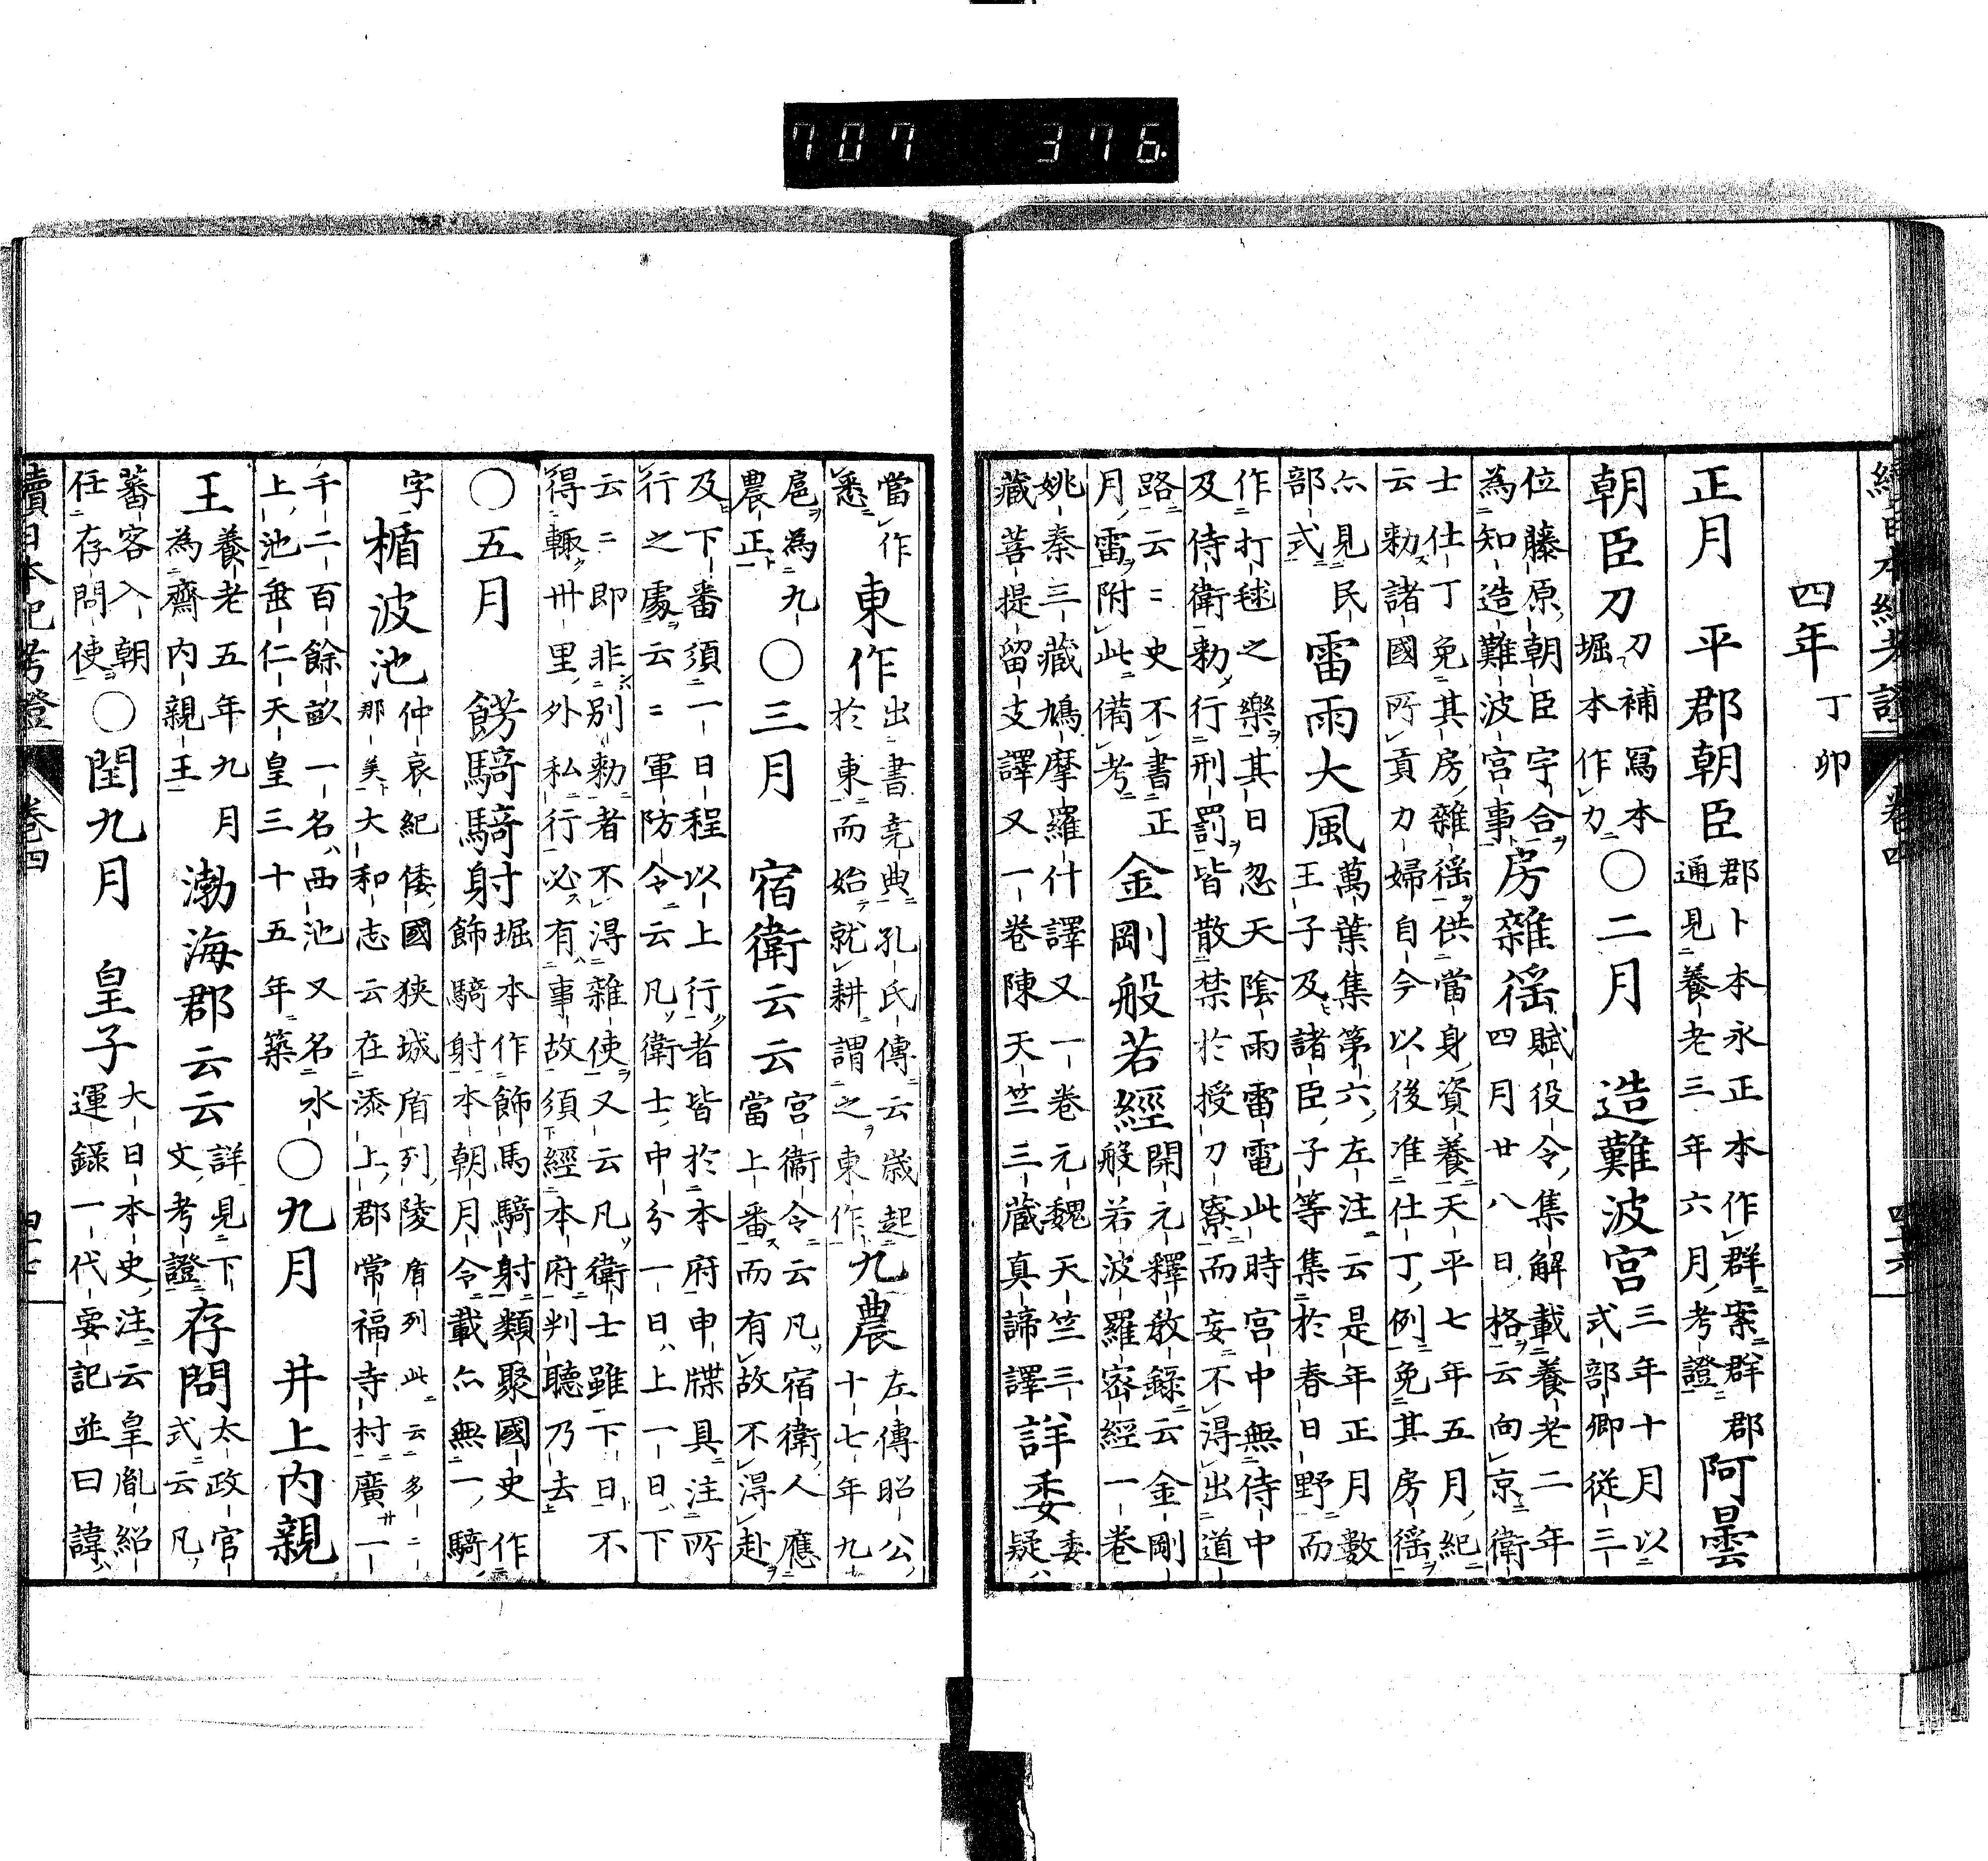 707 376
續日本紀考證 卷四 四十六
四年丁卯
正月 平郡朝臣 郡卜本永正本作群案群郡 通見養老三年六月考證 阿曇
朝臣刀 刀補冩本 堀本作力 〇二月 造難波宮 三年十月以 式部卿從三
位藤原朝臣宇合 為知造難波宮事 房雜徭 賦役令集解載養老二年 四月廿八日格云向京衛
士仕丁免其房雜徭供當身資養天平七年五月紀
云勅諸國所貢力婦自今以後准仕丁例免其房徭
亦見民 部式 雷雨大風 萬葉集第六左注云是年正月數 王子及諸臣子等集於春日野而
作打毬之樂其日忽天陰雨雷電此時宮中無侍中
及侍衛勅行刑罰皆散禁於授刀寮而妄不得出道
路云〻史不書正 月雷附此備考 金剛般若經 開元釋教錄云金剛 般若波羅密經一卷
姚秦三藏鳩摩羅什譯又一卷元魏天竺三
藏菩提留支譯又一卷陳天竺三藏真諦譯 詳委 委疑
當作 悉 東作 出書堯典孔氏傳云歲起 於東而始就耕謂之東作 九農 左傳昭公 十七年九
扈為九 農正 〇三月 宿衛云云 宮衛令云凡宿衛人應 當上番而有故不得赴
及下番須一日程以上行者皆於本府申牒具注所
行之處云〻軍防令云凡衛士中分一日上一日下
云〻即非別勅者不得雜使又云凡衛士雖下日不
得輙卅里外私行必有事故須經本府判聽乃去
〇五月 餝騎騎射 堀本作飾馬騎射類聚國史作 飾騎射本朝月令載亦無一騎
字 楯波池 仲哀紀倭國狹城盾列陵盾列此云多二 那美大和志云在添上郡常福寺村廣一
千二百餘畝一名西池又名水
上池垂仁天皇三十五年築 〇九月 井上內親
王 養老五年九月 為齋內親王 渤海郡云云 詳見下 文考證 存問 太政官 式云凡
蕃客入朝 任存問使 〇閏九月 皇子 大日本史注云皇胤紹 運錄一代要記並曰諱
續日本紀考證 卷四